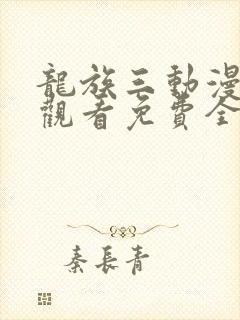 龍族三動漫
觀看免費全
秦長青